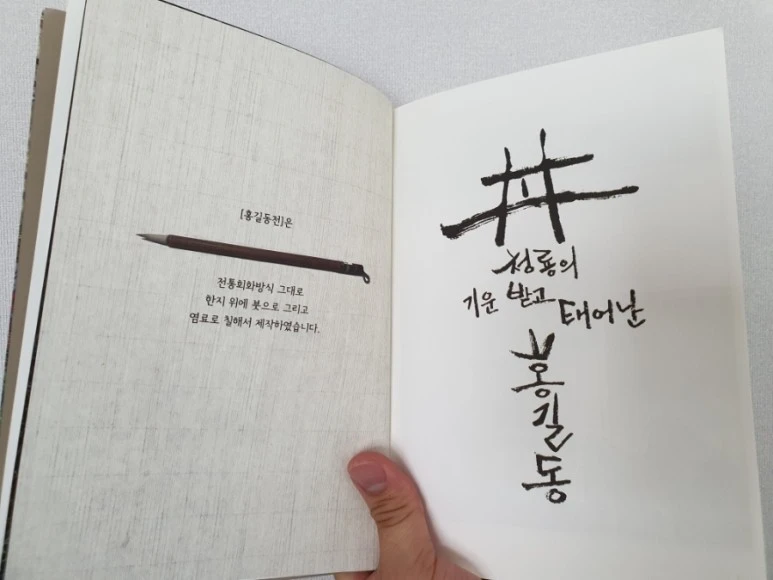 [홍길동전]은
전통회화방식 그대로
한지 위에 붓으로 그리고
염료로 칠해서 제작하였습니다.
井
청룡의
기운 받고 태어난
홍
길
동